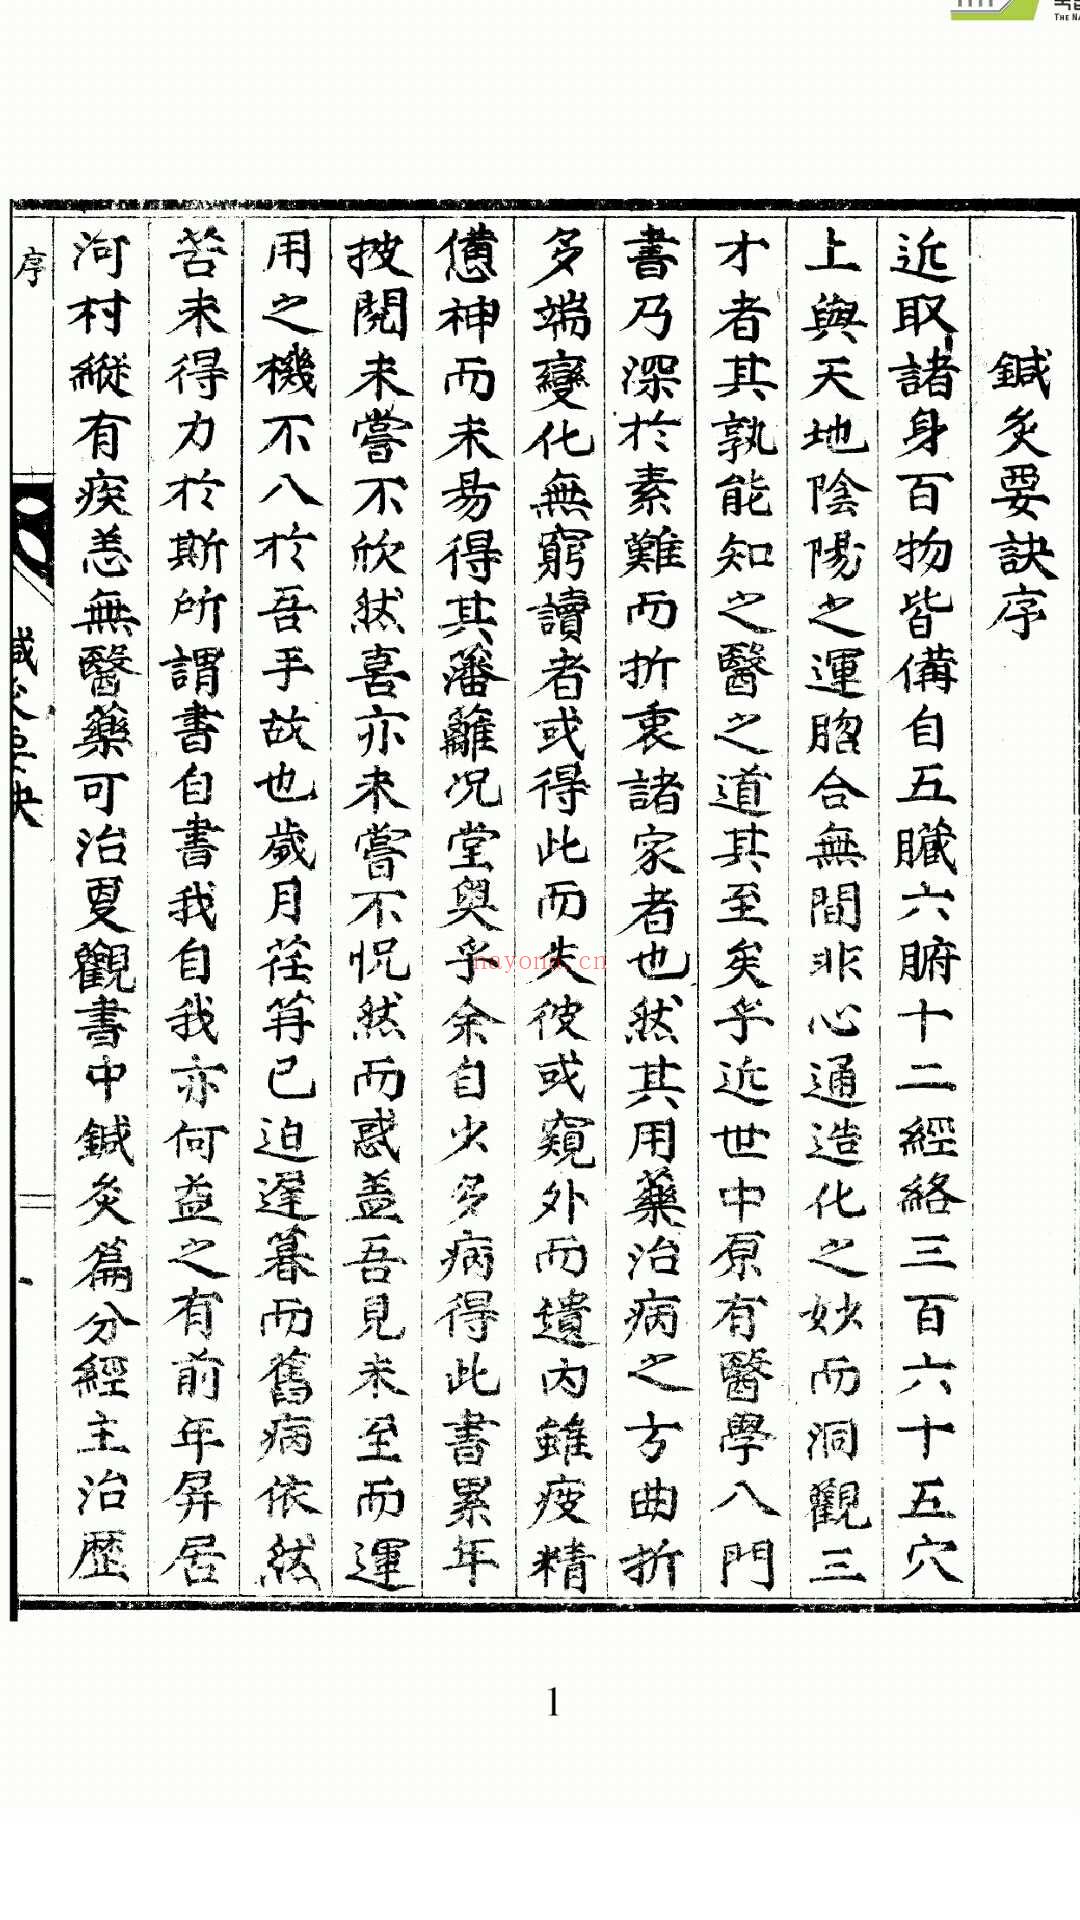 THE NA
鍼灸要訣序
近取諸身百物皆備自五臟六腑十二經絡三百六十五穴
上與天地陰陽之運脗合無間非心通造化之妙而洞觀三
才者其孰能知之醫之道其至矣乎近世中原有醫學八門
書乃深於素難而折衷諸家者也然其用藥治病之方曲折
多端變化無窮讀者或得此而失彼或窺外而遺內雖疲精
憊神而未易得其藩籬况堂奧乎余自少多病得此書累年
披閱未嘗不欣然喜亦未嘗不怳然而惑盖吾見未至而運
用之機不入於吾手故也歲月荏苒已迫遲暮而舊病依然
苦未得力於斯所謂書自書我自我亦何益之有前年屏居
河村縱有疾恙無醫藥可治夏觀書中鍼灸篇分經主治歷
序
鍼灸要訣
nayona.cn
1